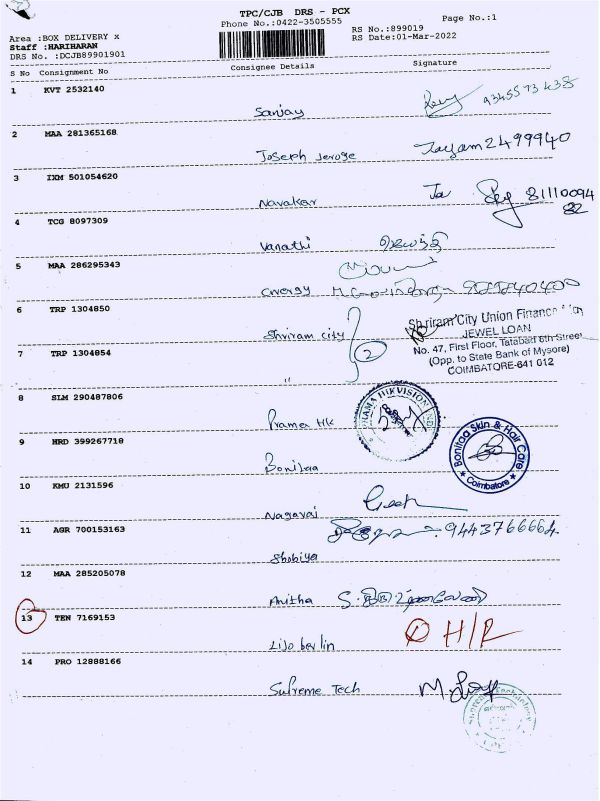 TPC/CJB DRS - PCX
Phone No.:0422-3505555
Page No.:1
RS No.:899019
RS Date:01-Mar-2022
Area :BOX DELIVERY x
Staff :HARIHARAN
DRS No. :DCJB89901901
S No Consignment No Consignee Details Signature
1 KVT 2532140
Sanjay 9345573438
2 MAA 281365168
Joseph Jeroge 2499940
3 IXM 501054620
Navakar 81110094
82
4 TCG 8097309
Vanathi
5 MAA 286295343
6 TRP 1304850
Shriram city 2
Shriram City Union Finance
JEWEL LOAN
No. 47, First Floor, Tatabad 6th Street
(Opp. to State Bank of Mysore)
COIMBATORE-641 012
7 TRP 1304854
"
8 SLM 290487806
Prama HK
PRAMA HIKVISION INDIA
9 HRD 399267718
Bonitaa
Bonitaa Skin & Hair Care
Coimbatore
10 KMU 2131596
Nagavai
11 AGR 700153163
Shobiya 9443766664
12 MAA 285205078
Anitha
13 TEN 7169153
Lijo berlin H/R
14 PRO 12888166
Supreme Tech